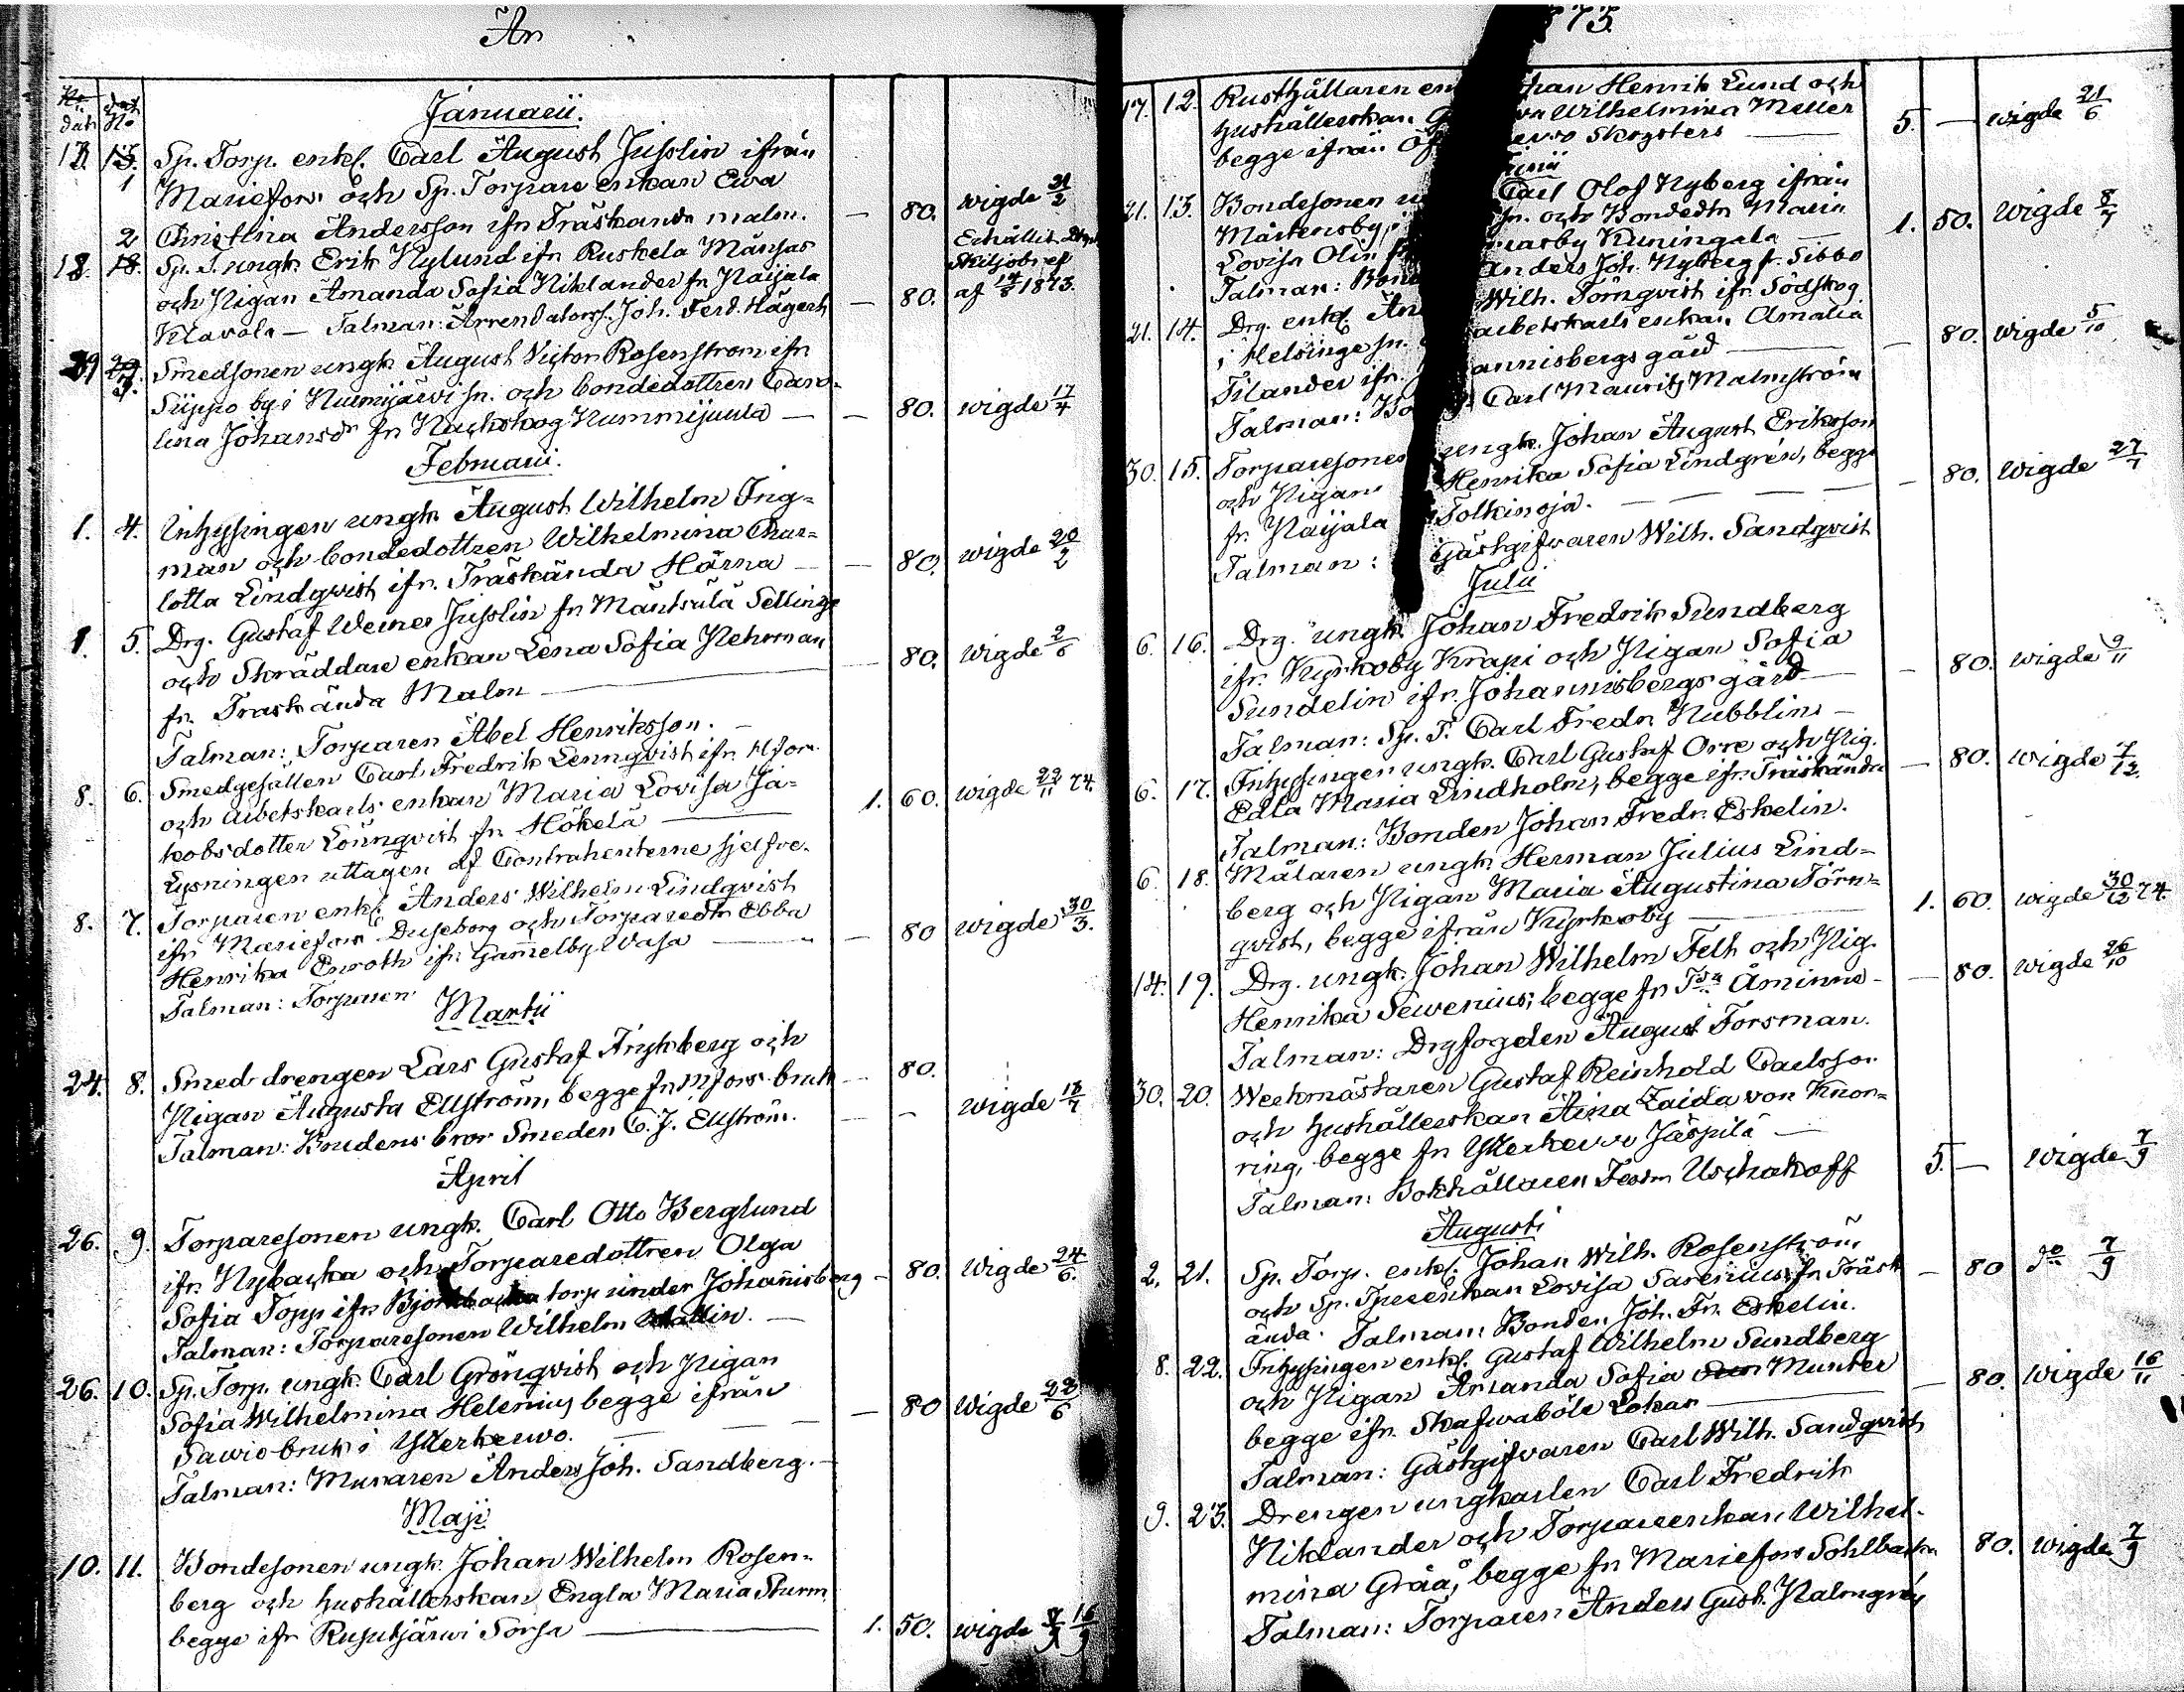 År
No dat
dat No
Januarii.
13. 13. Sp. Torp. enkl. Carl August Jusslin ifrån
1 Mariefors och Sp. Torpare enkan Ewa
2 Christina Andersson ifn Träskända malm. — 80. wigde 21/2
18. 18. Sp. T. ungk. Erik Nylund ifn Ruskela Mänsas Erhållit
och Pigan Amanda Sofia Niklander fn Paijala — 80. Skiljobref
Klavola — Talman: Joh. Ferd. Hägert af 1873.
29 29 Smedsonen ungk August Victor Rosenstrom ifn
3. by i Nurmijärvi sn. och bondedottren Caro-
lina Johansdr fn Nackskog Nummijuula — — 80. wigde 17/4
Februarii.
1. 4. Inhysingen ungk August Wilhelm Ing-
man och bondedottren Wilhelmina Char-
lotta Lindqvist ifr. Träskända Härna — — 80. wigde 20/2
1. 5. Drg. Gustaf Werner Jusslin fn Mäntsälä Sellinge
och Skräddare enkan Lena Sofia Nehrman — 80. wigde 2/6
fr. Traskända Malm —
Talman: Torparen Abel Henriksson. —
8. 6. Smedgesällen Carl Fredrik Lennqvist ifr. Mfors
och arbetskarls enkan Maria Lovisa Ja- 1. 60. wigde 22/11 74.
kobsdotter Lönnqvist fn Hökelä —
Lysningen uttagen af Contrahenterne sjelfve.
8. 7. Torparen enkl. Anders Wilhelm Lindqvist
ifr Mariefors Duseborg och Torparedtr Ebba
Henrika Enroth ifr. Gammelby Wasa — — 80 wigde 30/3.
Talman: Torparen
Martii
24. 8. Smed drengen Lars Gustaf Frykberg och
Pigan Augusta Ellström, begge fn Mfors bruk — 80.
Talman: Brudens bror Smeden C. J. Ellström. — — wigde 18/7
April
26. 9. Torparesonen ungk. Carl Otto Berglund
ifr. Nybacka och Torparedottren Olga
Sofia Topp ifn Björkbacka torp under Johannisberg — 80. wigde 24/6.
Talman: Torparesonen Wilhelm Wallin. —
26. 10. Sp. Torp. ungk. Carl Grönqvist och Pigan
Sofia Wilhelmina Helenius begge ifrån
Sawio bruk i Ytterkerwo. — — 80 wigde 22/6
Talman: Muraren Anders Joh. Sandberg. —
Maji
10. 11. Bondesonen ungk. Johan Wilhelm Rosen-
berg och hushållerskan Engla Maria Sturm
begge ifn Rusutjärwi Sorsa — 1. 50. wigde 16/9
73.
17. 12. Rusthållaren Henrik Lund och
hushållerskan Wilhelmina Meller
begge ifrån Skogsters — 5. — wigde 21/6
21. 13. Bondesonen Carl Olof Nyberg ifrån
Mårtensby i sn. och Bondedtr Maria
Lovisa Olin Kuningala — 1. 50. wigde 8/7
Talman: Anders Joh. Nyberg fr. Sibbo
21. 14. Drg. enkl. Wilh. Törnqvist ifr. Södskog
i Helsinge sn. arbetskarls enkan Amalia
Tilander ifr. annisbergs gård — — 80. wigde 5/10
Talman: Carl Mauritz Malmström
30. 15. Torparesonen ungk. Johan August Eriksson
och Pigan Henrika Sofia Lindgrén, begge
fr. Paijala Tolkinoja. — — 80. wigde 27/7
Talman: Gästgifwaren Wilh. Sandqvist
Julii
6. 16. Drg. ungk. Johan Fredrik Sundberg
ifr. Kyrkoby Krapi och Pigan Sofia
Sundelin ifr. Johannisbergs gård — — 80. wigde 9/11
Talman: Sp. T. Carl Fredr. Nubblin —
6. 17. Inhysingen ungk. Carl Gustaf Orre och Pig.
Edla Maria Lindholm, begge ifr. Träskända — 80. wigde 7/12.
Talman: Bonden Johan Fredr. Eskelin.
6. 18. Målaren ungk Herman Julius Lind-
berg och Pigan Maria Augustina Törn-
qvist, begge ifrån Kyrkoby — 1. 60. wigde 30/12 74.
14. 19. Drg. ungk. Johan Wilhelm Felt och Pig.
Henrika Sewenius, begge fn Åminne — — 80. wigde 26/10
Talman: Drgfogden August Forsman.
30. 20. Werkmästaren Gustaf Reinhold Carlsson
och hushållerskan Aina Zaida von Knor-
ring, begge fn Ytterkerwo Jäspilä — 5. — wigde 7/9
Talman: Bokhållaren Feodor Uschakoff
Augusti
2. 21. Sp. Torp. enkl. Johan Wilh. Rosenström
och Sp. Tpreenkan Lovisa Sarenius, fn Träsk — 80 do 7/9
ända. Talman: Bonden Joh. Fr. Eskelin.
8. 22. Inhysingen enkl. Gustaf Wilhelm Sundberg
och Pigan Amanda Sofia Munter
begge ifr. Skafwaböle Lokas — — 80. wigde 16/11
Talman: Gästgifvaren Carl Wilh. Sandqvist
9. 23. Drengen ungkarlen Carl Fredrik
Niklander och Torpareenkan Wilhel-
mina Gråå, begge fn Mariefors Sohlbacka 80. wigde 7/9
Talman: Torparen Anders Gust. Malmgrén